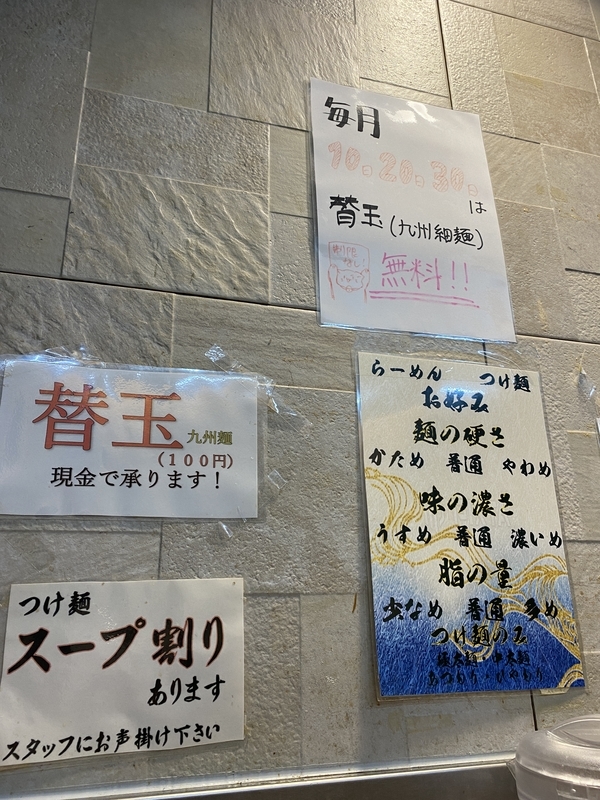 毎月
10.20.30.
は
替玉(九州細麺)
制限
なし!
無料!!
替玉 九州麺
(100円)
現金で承ります!
らーめん つけ麺
お好み
麺の硬さ
かため 普通 やわめ
味の濃さ
うすめ 普通 濃いめ
脂の量
少なめ 普通 多め
つけ麺のみ
極太麺・中太麺
あつもり・ひやもり
つけ麺
スープ割り
あります
スタッフにお声掛け下さい